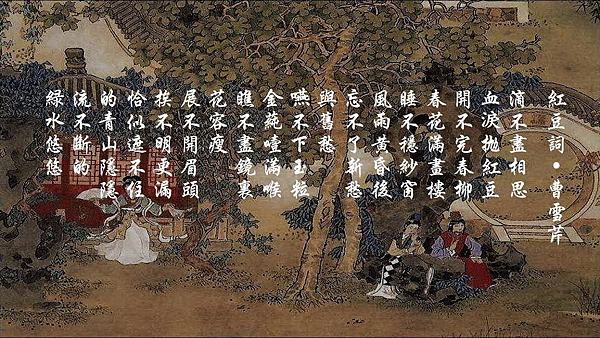 紅豆詞•曹雪芹
滴不盡相思
血淚拋紅豆
開不完春柳
春花滿畫樓
睡不穩紗窗
風雨黃昏後
忘不了新愁
與舊愁
嚥不下玉粒
金蒓噎滿喉
瞧不盡鏡裏
花容瘦
展不開眉頭
挨不明更漏
恰似遮不住
的青山隱隱
流不斷的
綠水悠悠